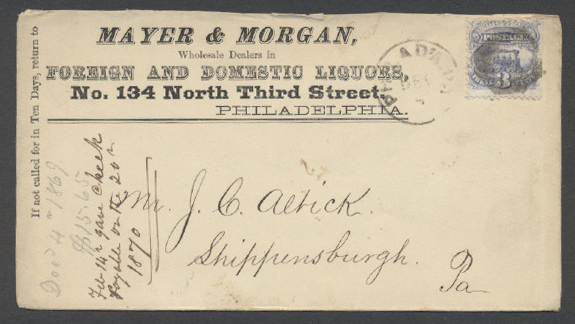 MAYER & MORGAN,
Wholesale Dealers in
FOREIGN AND DOMESTIC LIQUORS,
No. 134 North Third Street,
PHILADELPHIA.
If not called for in Ten Days, return to
POSTAGE
3
Mr. J. C. Altick.
Shippensburgh.
Pa
Dec 4th 1869
$15.65
Feb 14th gave check
Payable on the 20th
1870